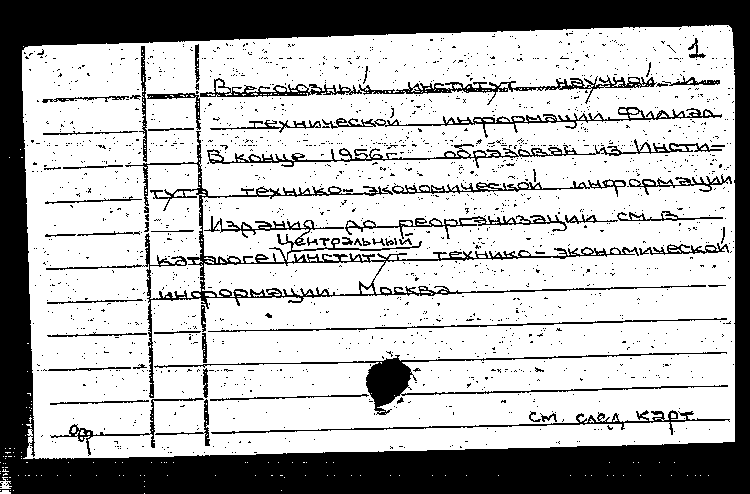 1
Всесоюзный институт научной и
технической информации. Филиал
В конце 1956г. образован из Инсти=
тута технико-экономической информации.
Издания до реорганизации см. в
Центральный
каталоге: институт технико-экономической
информации. Москва.
см. след. карт.